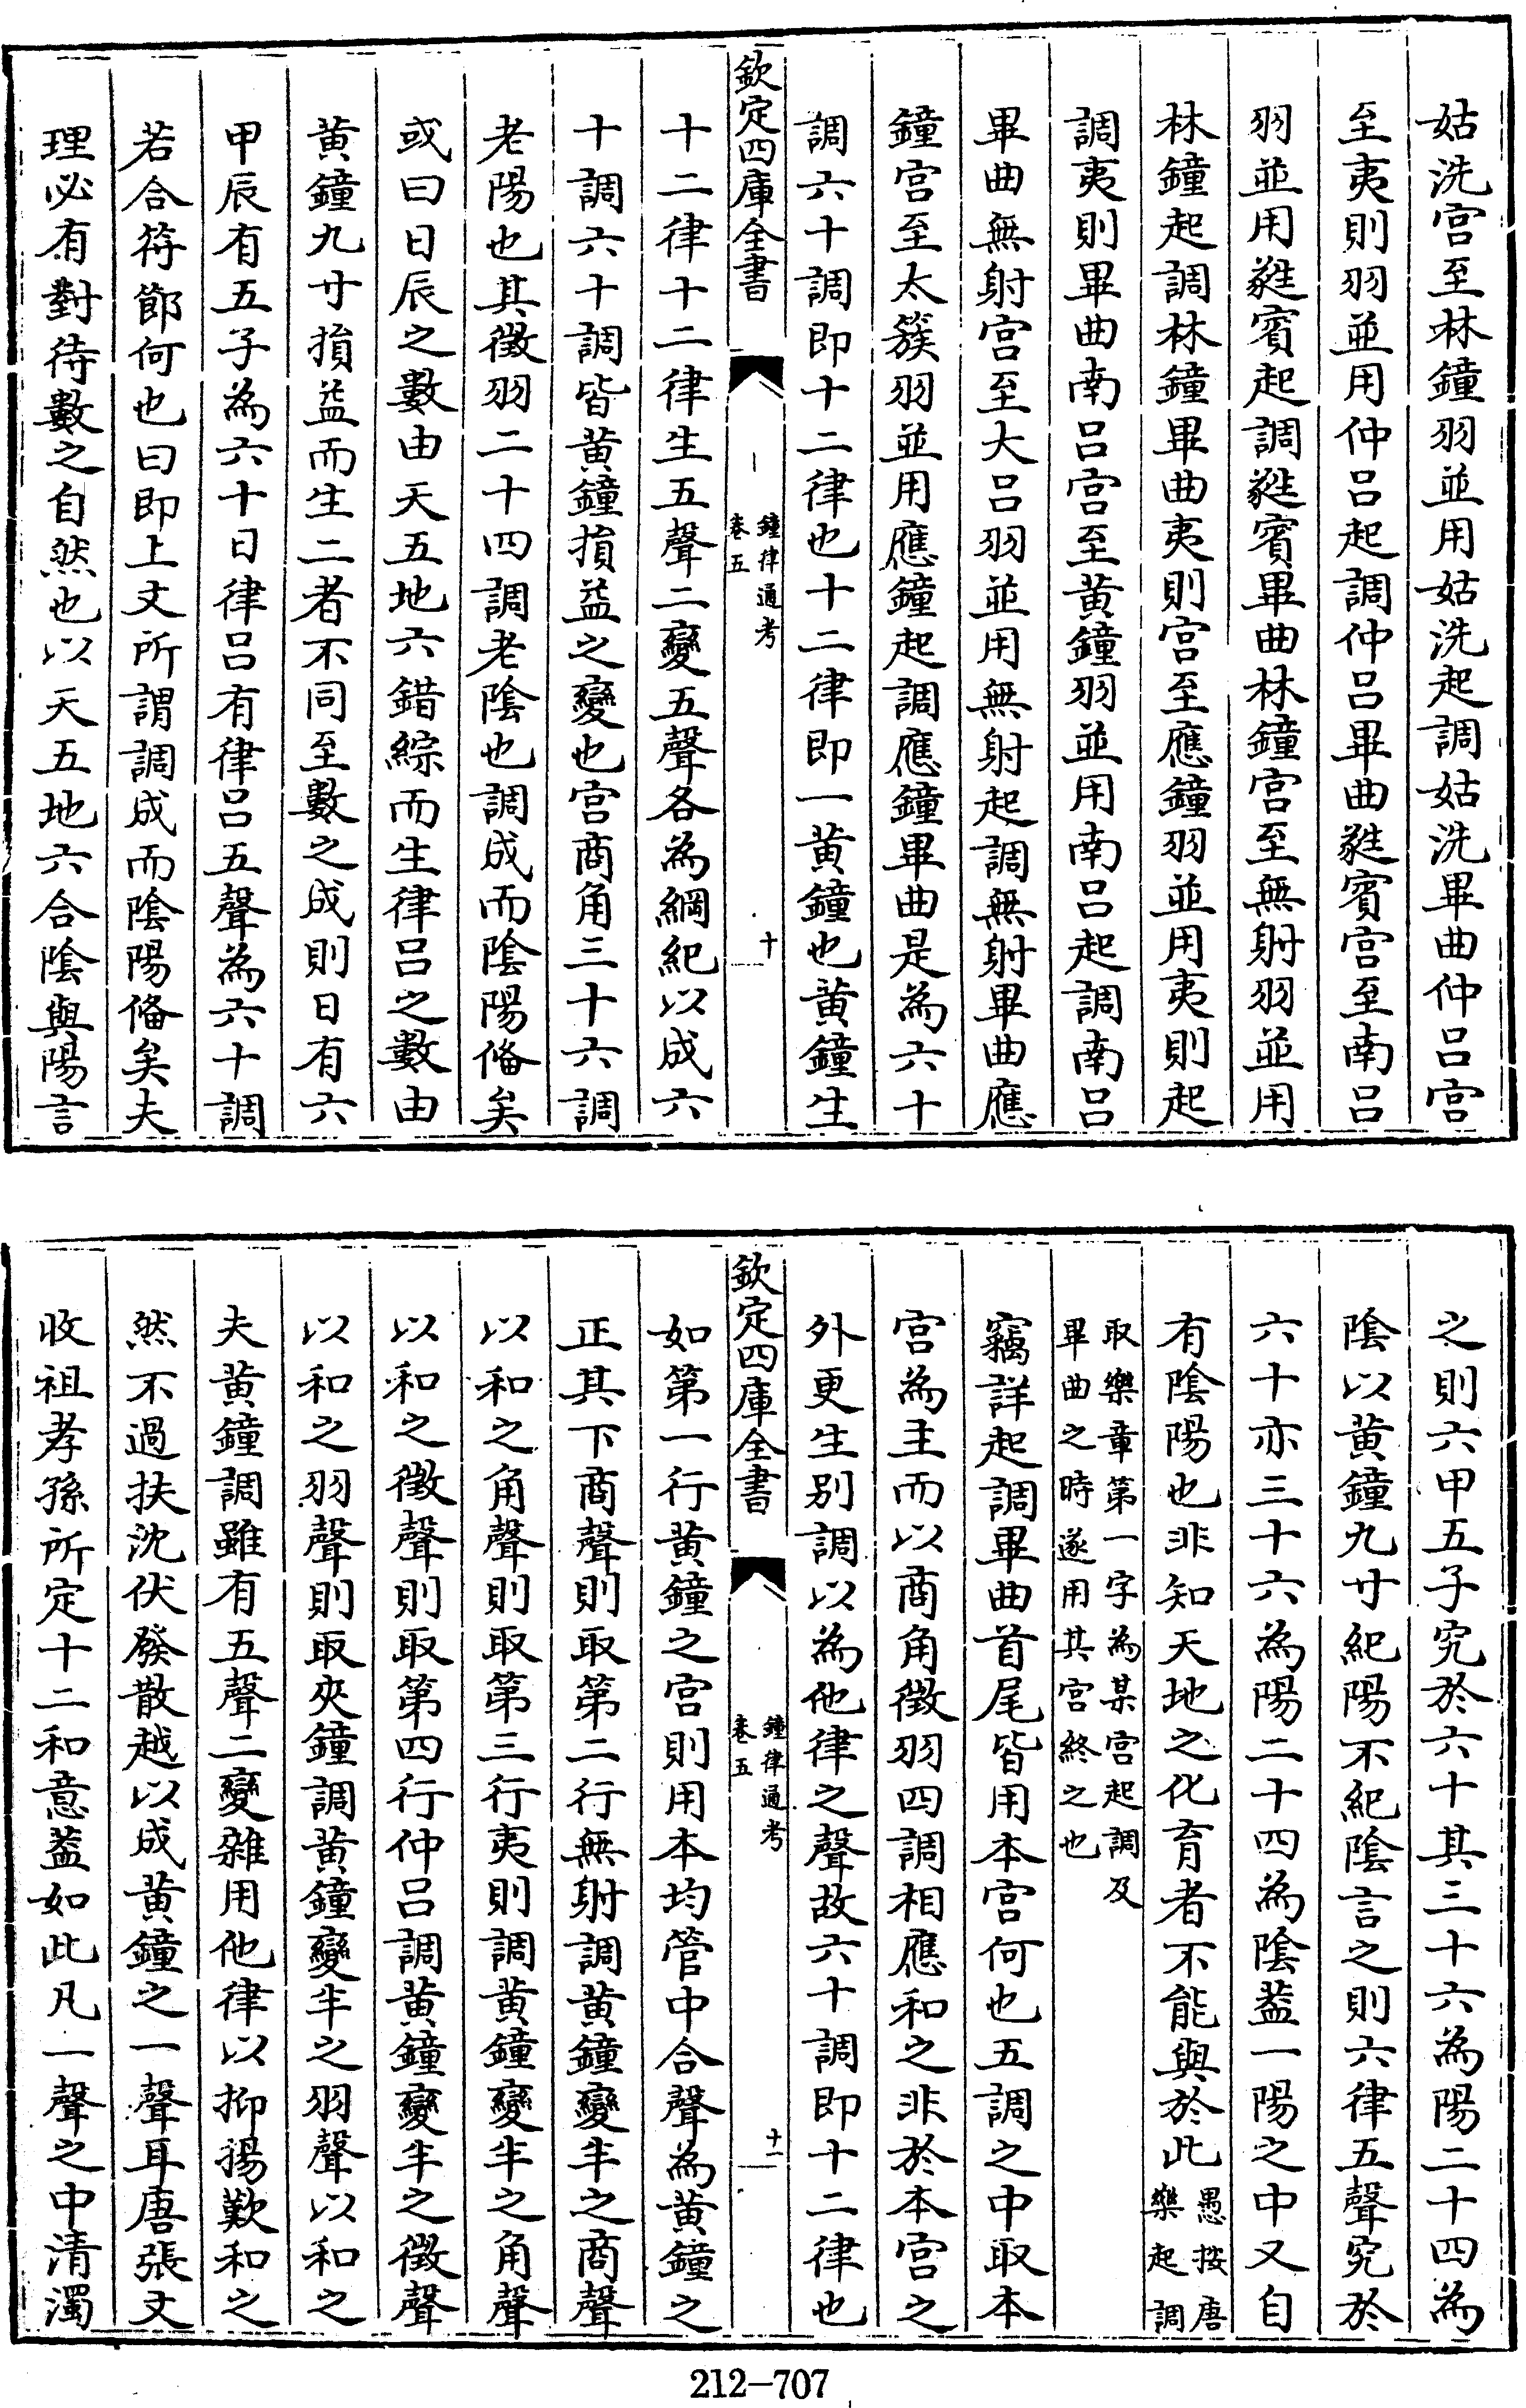 姑洗宫至林鐘羽並用姑洗起調姑洗畢曲仲呂宫
至夷則羽並用仲呂起調仲呂畢曲蕤賓宫至南呂
羽並用蕤賓起調蕤賓畢曲林鐘宫至無射羽並用
林鐘起調林鐘畢曲夷則宫至應鐘羽並用夷則起
調夷則畢曲南呂宫至黄鐘羽並用南呂起調南呂
畢曲無射宫至大呂羽並用無射起調無射畢曲應
鐘宫至太簇羽並用應鐘起調應鐘畢曲是為六十
調六十調即十二律也十二律即一黄鐘也黄鐘生
欽定四庫全書
鐘律通考
卷五
十
十二律十二律生五聲二變五聲各為綱紀以成六
十調六十調皆黄鐘損益之變也宫商角三十六調
老陽也其徵羽二十四調老陰也調成而陰陽俻矣
或曰日辰之數由天五地六錯綜而生律呂之數由
黄鐘九寸損益而生二者不同至數之成則日有六
甲辰有五子為六十日律呂有律呂五聲為六十調
若合符節何也曰即上文所謂調成而陰陽俻矣夫
理必有對待數之自然也以天五地六合陰與陽言
之則六甲五子究於六十其三十六為陽二十四為
陰以黄鐘九寸紀陽不紀陰言之則六律五聲究於
六十亦三十六為陽二十四為陰葢一陽之中又自
有陰陽也非知天地之化育者不能與於此愚按唐
樂起調
取樂章第一字為某宫起調及
畢曲之時遂用其宫終之也
竊詳起調畢曲首尾皆用本宫何也五調之中取本
宫為主而以商角徵羽四調相應和之非於本宫之
外更生别調以為他律之聲故六十調即十二律也
欽定四庫全書
鐘律通考
卷五
十一
如第一行黄鐘之宫則用本均管中合聲為黄鐘之
正其下商聲則取第二行無射調黄鐘變半之商聲
以和之角聲則取第三行夷則調黄鐘變半之角聲
以和之徵聲則取第四行仲呂調黄鐘變半之徵聲
以和之羽聲則取夾鐘調黄鐘變半之羽聲以和之
夫黄鐘調雖有五聲二變雜用他律以抑揚歎和之
然不過扶沈伏發散越以成黄鐘之一聲耳唐張文
收祖孝孫所定十二和意葢如此凡一聲之中清濁
212-707